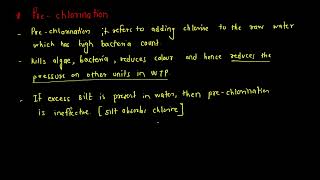 * Pre-chlorination
- Pre-chlorination ; it refers to adding chlorine to the raw water
which has high bacteria count
- Kills algae, bacteria, reduces colour and hence reduces the
pressure on other units in WTP.
- If excess silt is present in water, then pre-chlorination
is ineffective. [silt absorbs chlorine]